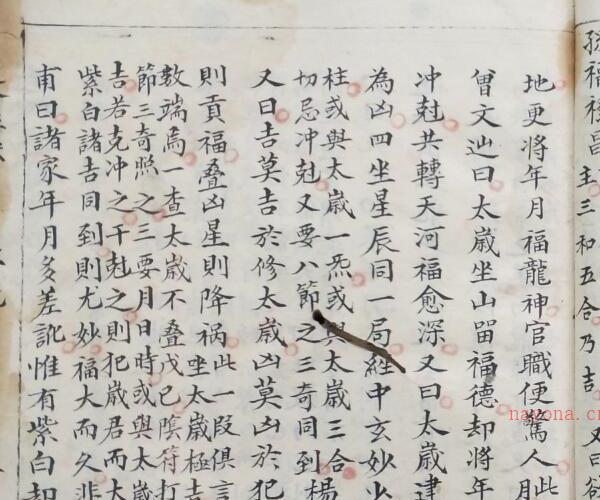 孫福祿昌主三和五合乃吉又曰欲
地更將年月福龍神官職便驚人此
曾文辿曰太歲坐山畱福德却將年
冲尅共轉天河福愈深又曰太歲建
為凶四坐星辰同一局經中玄妙少
柱或與太歲一炁或與太歲三合
切忌冲尅又要八節之三奇同到楊
又曰吉莫吉於修太歲凶莫凶於犯
則貢福叠凶星則降祸此一段俱言
坐太歲極吉
敦端爲一查太歲不叠戊巳隂符打
節三奇照之三要月日時或與太歲
吉若克冲之干尅之則犯歲君而大
紫白諸吉同到則尤妙福大而久非
甫曰諸家年月多差訛惟有紫白却
nayona.c